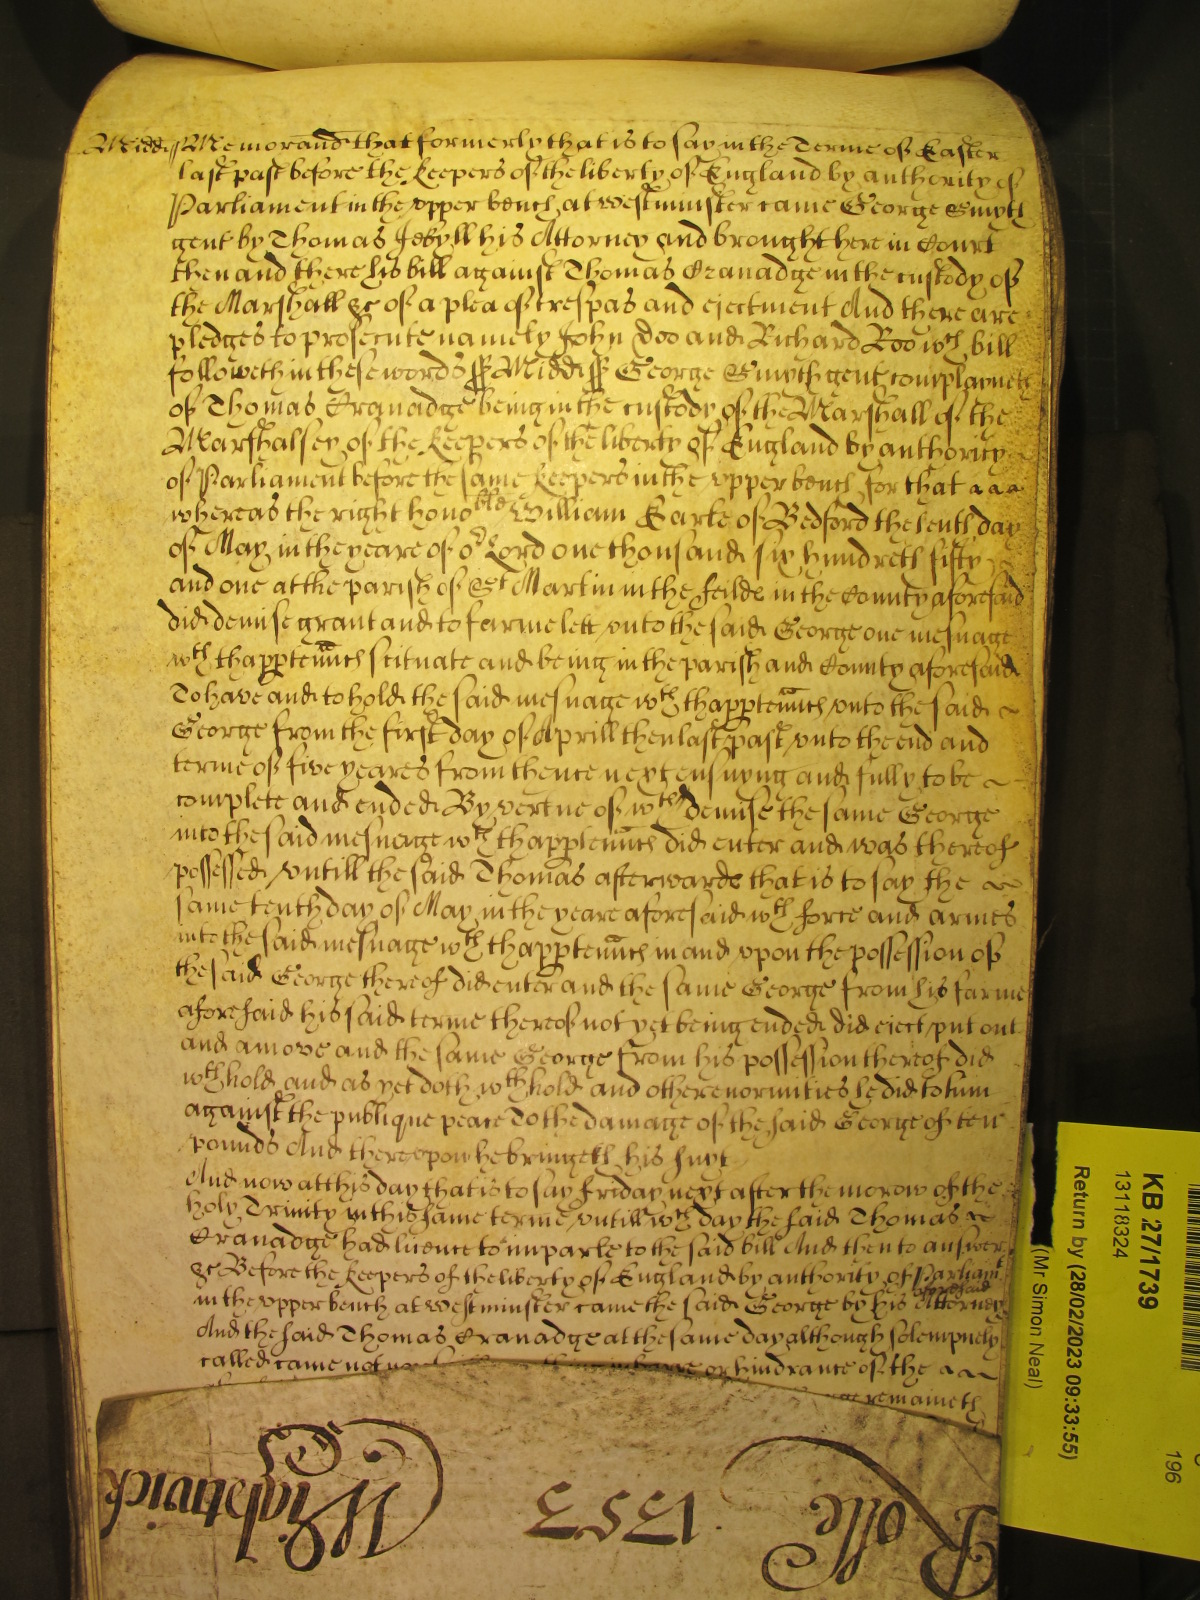 Midd ss Memorand that formerly that is to say in the Terme of Easter
last past before the keepers of the liberty of England by authority of
Parliament in the upper bench at Westminster came George Smyth
gent by Thomas Jekyll his Attorney and brought here in Court
then and there his bill against Thomas Cranadge in the custody of
the Marshall &c of a plea of trespas and ejectment And there are
pledges to prosecute namely John Doo and Richard Roo wch bill
followeth in these words ss Midd ss George Smyth gent complayneth
of Thomas Cranadge being in the custody of the Marshall of the
Marshalsey of the keepers of the liberty of England by authority
of Parliament before the same keepers in the upper bench for that
whereas the right honoble William Earle of Bedford the tenth day
of May in the yeare of or Lord one thousand six hundreth fifty
and one at the parish of St Martin in the feilds in the County aforesaid
did demise grant and to farme lett unto the said George one mesuage
wth thapptennces scituate and being in the parish and County aforesaid
To have and to hold the said mesuage wth thapptennces unto the said
George from the first day of Aprill then last past unto the end and
terme of five yeares from thence next ensuyng and fully to be
complete and ended By vertue of wch demise the same George
into the said mesuage wth thapptennces did enter and was thereof
possessed untill the said Thomas afterwards that is to say the
same tenth day of May in the yeare aforesaid wth force and armes
into the said mesuage wth thapptennces in and upon the possession of
the said George thereof did enter and the same George from his farme
aforesaid his said terme thereof not yet being ended did eject put out
and amove and the same George from his possession thereof did
wthhold and as yet doth wthhold and other enormities he did to him
against the publique peace To the damage of the said George of ten
pounds And thereupon he bringeth his suyt
And now at this day that is to say Friday next after the morow of the
holy Trinity in this same terme untill wch day the said Thomas
Cranadge had licence to imparle to the said bill And then to answer
&c Before the keepers of the liberty of England by authority of Parliamt
in the upper bench at Westminster came the said George by his Attorney aforesaid
And the said Thomas Cranadge at the same day although solempnely
called came not nor in barre or hindrance of the
remaineth
Rolle 1553 Wightwick
KB 27/1739
13118324
Return by (28/02/2023 09:33:55)
(Mr Simon Neal)
196